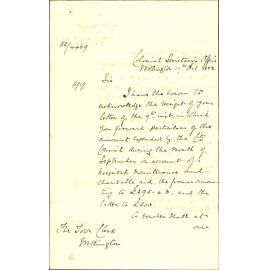 82/4469
Colonial Secretary's Office
Wellington 17th Oct 1882
499
Sir
I have the honor to
acknowledge the receipt of your
letter of the 9th inst in which
you forward particulars of the
amount expended by the City
Council during the month of
September on account of
hospital maintenance and
charitable aid, the former amoun
ting to £295. and the
latter to £200.
A voucher shall at
once
The Town Clerk
Wellington